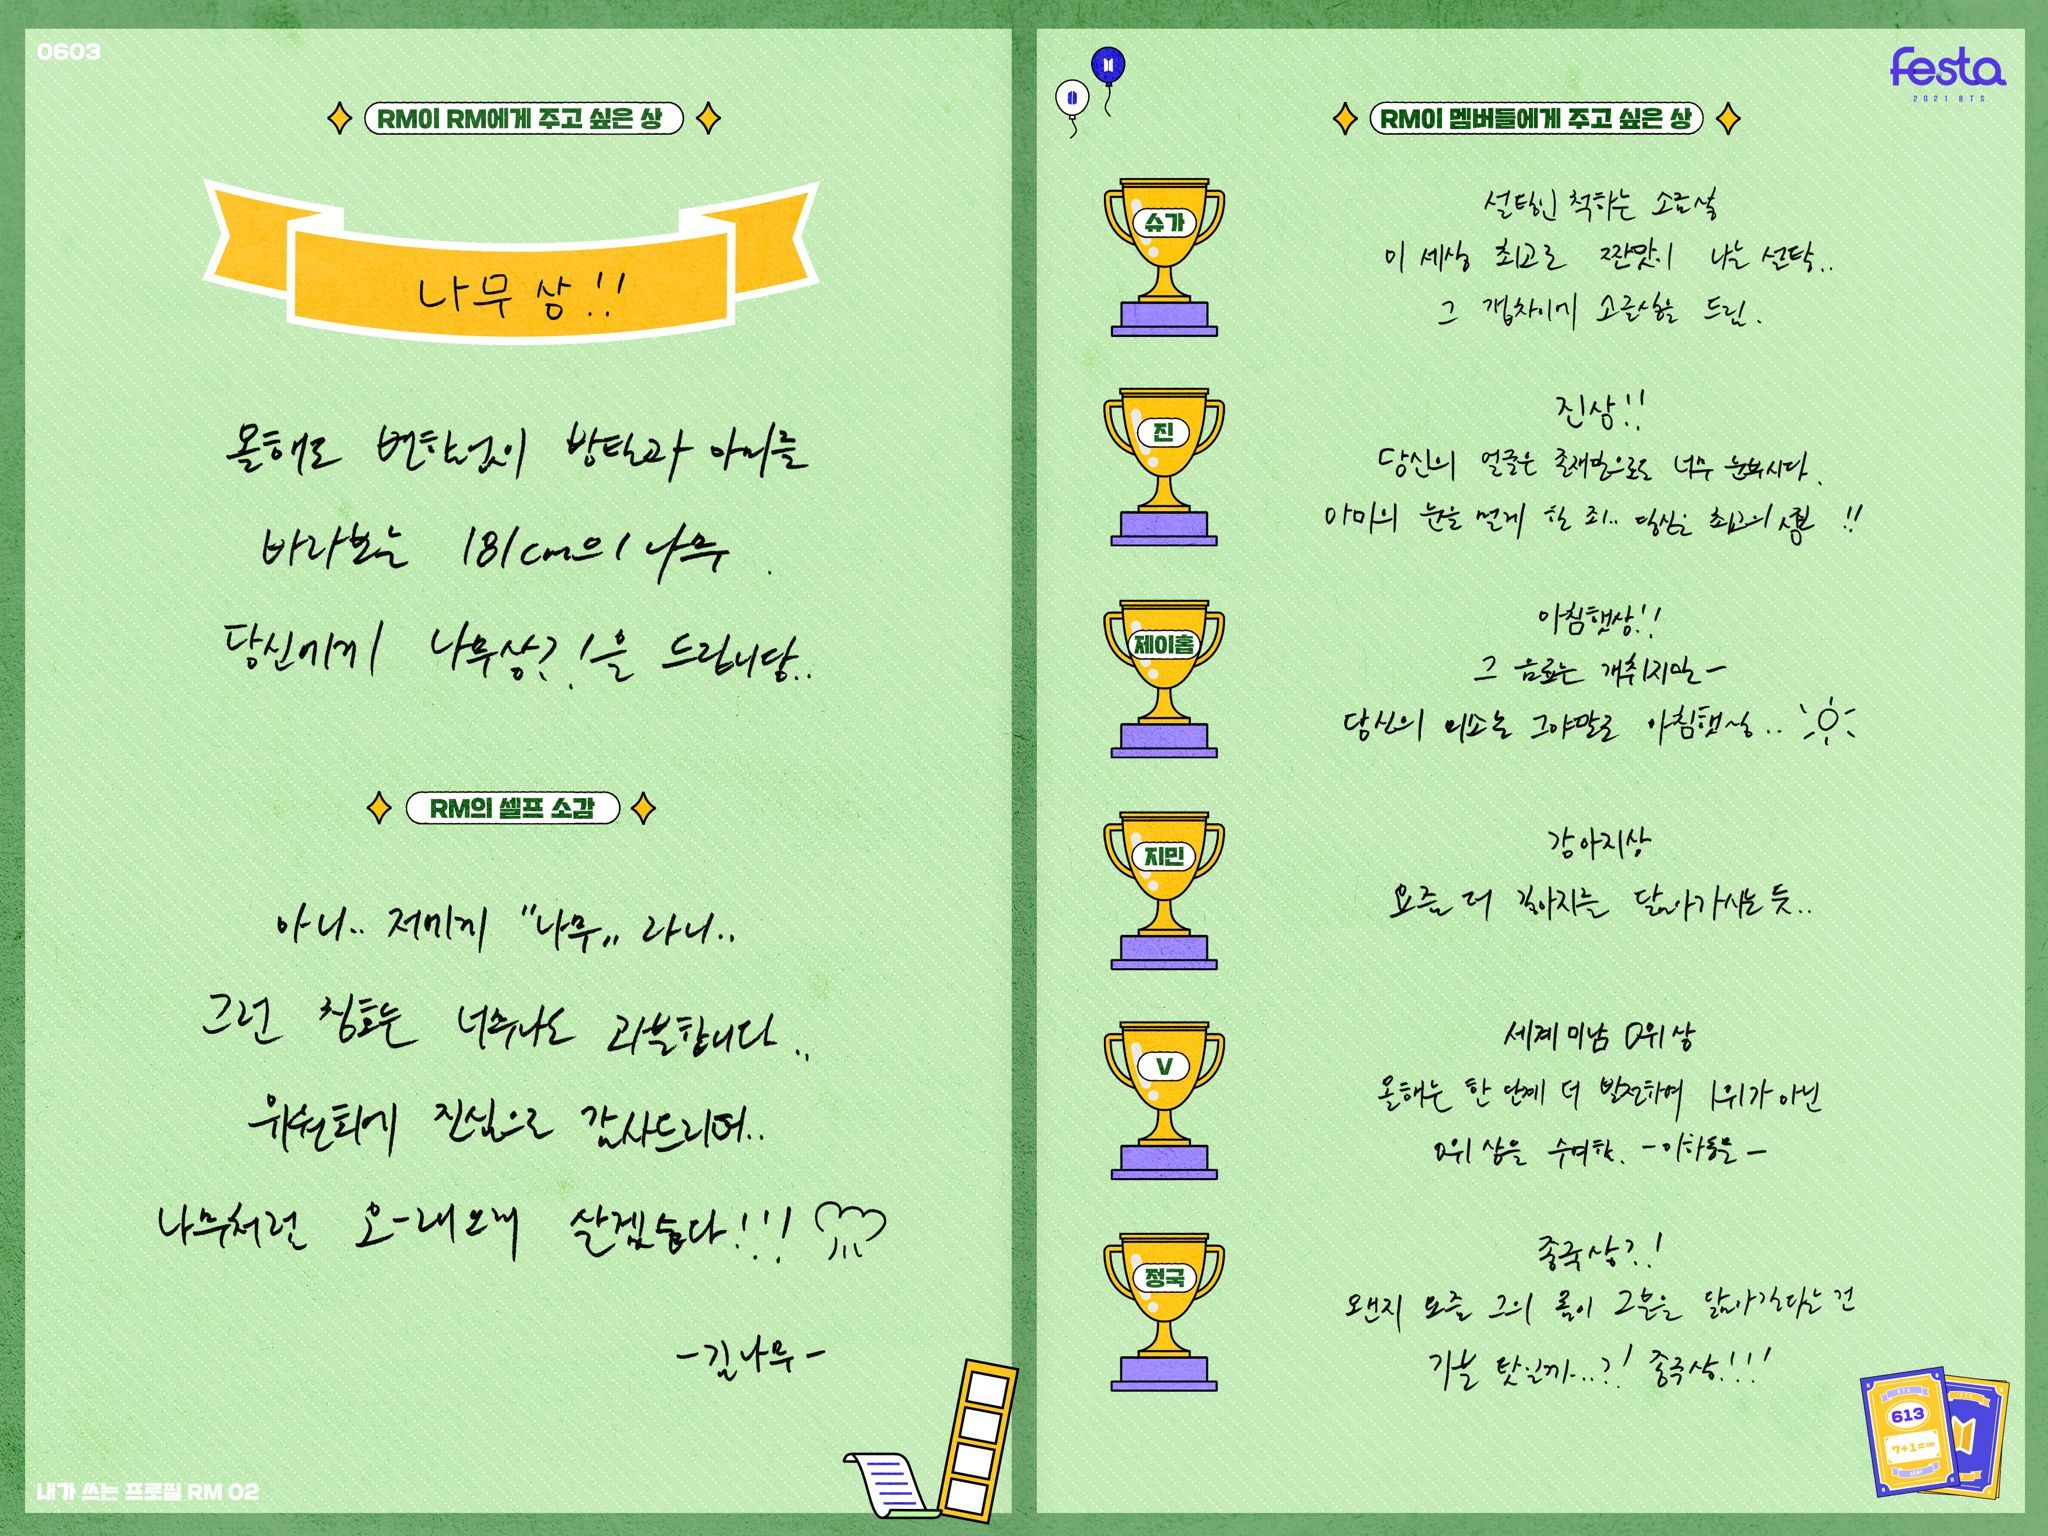 0603
RM이 RM에게 주고 싶은 상
나무상!!
올해도 변함없이 방탄과 아미를
바라보는 181cm의 나무.
당신에게 나무상?!을 드립니당..
RM의 셀프 소감
아니.. 저에게 "나무" 라니..
그런 칭호는 너무나도 과분합니다..
위원회에 진심으로 감사드리며..
나무처럼 오-래오래 살겠습다!!!
-김나무-
내가 쓰는 프로필 RM 02
festa
2021 BTS
RM이 멤버들에게 주고 싶은 상
슈가
설탕인 척하는 소금상
이 세상 최고로 짠맛이 나는 설탕..
그 갭차이에 소금상을 드림.
진
진상!!
당신의 얼굴은 존재만으로도 너무 눈부시다.
아미의 눈을 멀게 한 죄.. 당신은 최고의 !!
제이홉
아침햇상!!
그 음료는 개취지만-
당신의 미소는 그야말로 아침햇상..
지민
감아지상
요즘 더 강아지를 닮아가시는 듯..
V
세계 미남 0위 상
올해는 한 단계 더 발전하여 1위가 아닌
0위 상을 수여함. -이하동문-
정국
종국상?!
왠지 요즘 그의 몸이 그분을 닮아간다는 건
기분 탓일까...?! 종국상!!!
613
7+1=∞